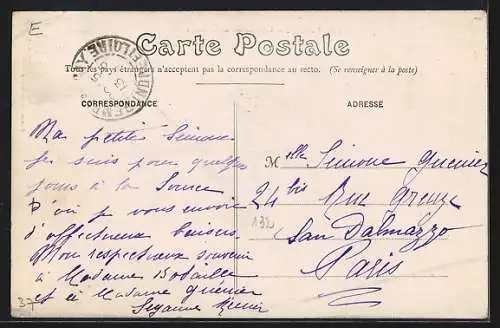 E
Carte Postale
Tous les pays étrangers n'acceptent pas la correspondance au recto. (Se renseigner à la poste)
CORRESPONDANCE
Ma petite Simone
Je suis pour quelques
jours à la Source
D'où je vous envoie
d'affectueux baisers
Mon respectueux souvenir
à Madame
et à Madame Quenier
Suzanne
ADRESSE
Mlle Simone Quenier
24 bis Rue Greuze
San Dalmazzo
Paris
132
37